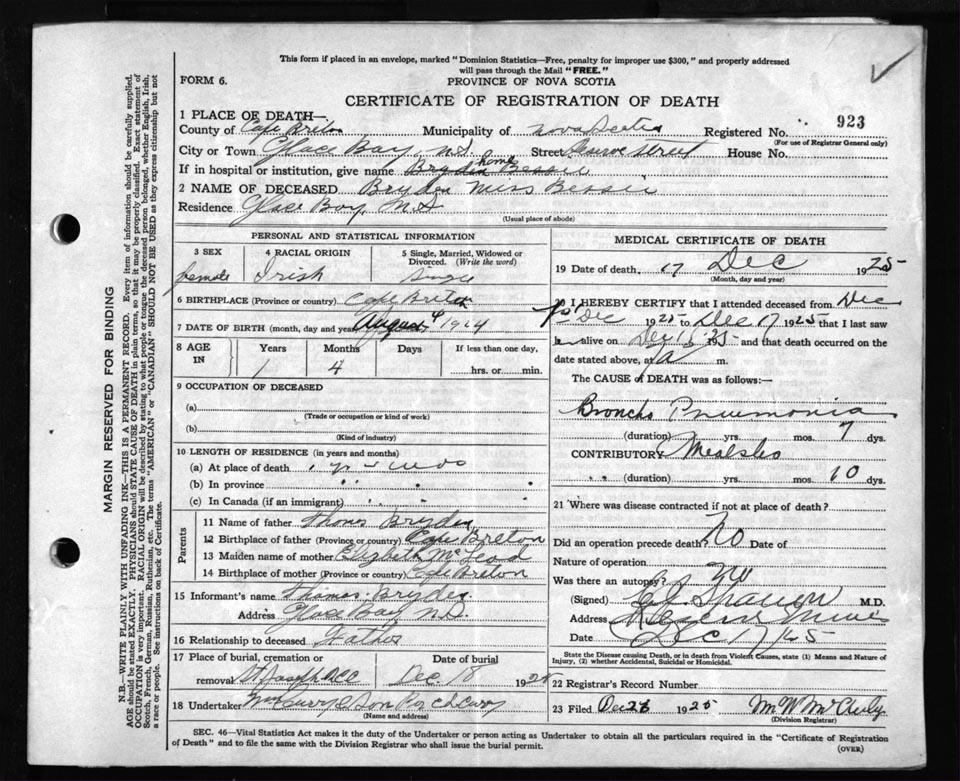 This form if placed in an envelope, marked "Dominion Statistics—Free, penalty for improper use $300," and properly addressed
will pass through the Mail "FREE."
FORM 6.
PROVINCE OF NOVA SCOTIA
CERTIFICATE OF REGISTRATION OF DEATH
1 PLACE OF DEATH—
County of Cape Briton Municipality of Nova Scotia Registered No. 923
(For use of Registrar General only)
City or Town Glace Bay, N.S. Street Street House No.
If in hospital or institution, give name Bryden Bessie home
2 NAME OF DECEASED Bryden Miss Bessie
Residence Glace Bay, N.S
(Usual place of abode)
PERSONAL AND STATISTICAL INFORMATION
3 SEX
female
4 RACIAL ORIGIN
Irish
5 Single, Married, Widowed or Divorced. (Write the word)
Single
6 BIRTHPLACE (Province or country) Cape Breton
7 DATE OF BIRTH (month, day and year) August 4 1924
8 AGE IN
Years Months Days If less than one day,
1 4 hrs. or min.
9 OCCUPATION OF DECEASED
(a)
(Trade or occupation or kind of work)
(b)
(Kind of industry)
10 LENGTH OF RESIDENCE (in years and months)
(a) At place of death 1 yr 4 mos
(b) In province " "
(c) In Canada (if an immigrant) " "
Parents
11 Name of father Thomas Bryden
12 Birthplace of father (Province or country) Cape Breton
13 Maiden name of mother Elizbeth McLead
14 Birthplace of mother (Province or country) Cape Breton
15 Informant's name Thomas Bryden
Address Glace Bay N.S.
16 Relationship to deceased Father
17 Place of burial, cremation or removal St Joseph
Date of burial Dec. 18 1925
18 Undertaker & Son
(Name and address)
MEDICAL CERTIFICATE OF DEATH
19 Date of death 17 Dec 1925
(Month, day and year)
20 I HEREBY CERTIFY that I attended deceased from Dec
Dec 1925 to Dec 17 1925 that I last saw
alive on Dec 1925 and that death occurred on the
date stated above, at a m.
The CAUSE of DEATH was as follows:—
Broncho Pneumonia
(duration) yrs. mos. 7 dys.
CONTRIBUTORY Mealsles
" " (duration) yrs. mos. 10 dys.
21 Where was disease contracted if not at place of death?
Did an operation precede death? No Date of
Nature of operation
Was there an autopsy? No
(Signed) M.D.
Address Mines
Date Dec 17/25
State the Disease causing Death, or in death from Violent Causes, state (1) Means and Nature of Injury, (2) whether Accidental, Suicidal or Homicidal.
22 Registrar's Record Number
23 Filed Dec 1925
(Division Registrar)
SEC. 46—Vital Statistics Act makes it the duty of the Undertaker or person acting as Undertaker to obtain all the particulars required in the "Certificate of Registration
of Death" and to file the same with the Division Registrar who shall issue the burial permit.
(OVER)
MARGIN RESERVED FOR BINDING
N.B.—WRITE PLAINLY WITH UNFADING INK—THIS IS A PERMANENT RECORD. Every item of information should be carefully supplied.
AGE should be stated EXACTLY. PHYSICIANS should STATE CAUSE OF DEATH in plain terms, so that it may be properly classified. Exact statement of
OCCUPATION is very important. RACIAL ORIGIN will be described by stating to what people or tongue the deceased person belonged, whether English, Irish,
Scotch, French, German, Russian, Ruthenian, etc. The terms "AMERICAN" or "CANADIAN" SHOULD NOT BE USED as they express citizenship but not
a race or people. See instructions on back of Certificate.